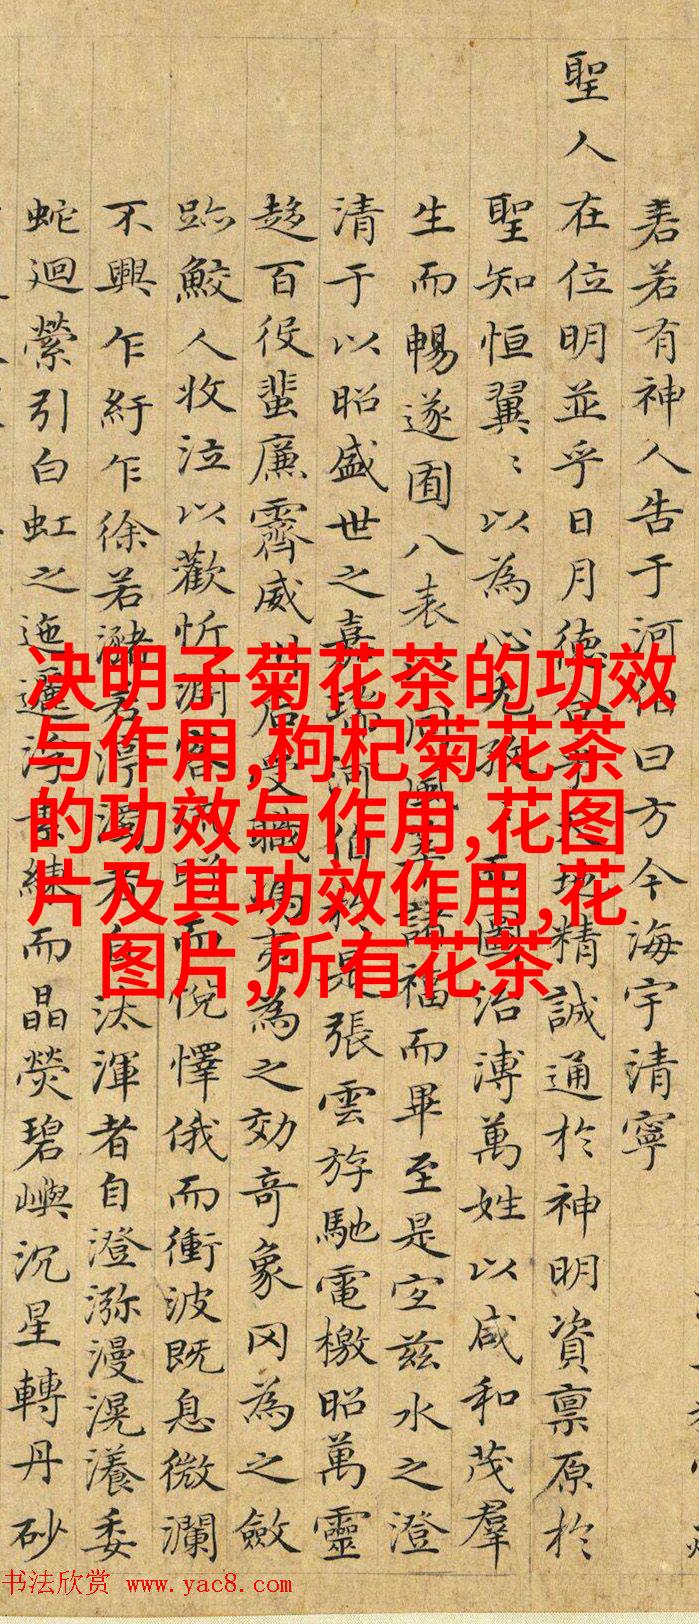 聖人
若若有神人告于河伯曰方今海宇清寧
在位明並乎日月德合乎天地精誠通於神明資禀原於
聖知恒翼〻以為心
圖治溥萬姓以咸和茂羣
生而暢遂囿八表
諸福而畢至是宜茲水之澄
清于以昭盛世之嘉瑞河伯於是張雲斿馳電檄昭萬靈
趍百役蜚廉霽威
受職馮夷為之効奇象罔為之斂
跡鮫人收泣以歡忻
而悅懌俄而衝波既息微瀾
不興乍紆乍徐若
者自汰渾者自澄瀰漫滉瀁委
蛇迴縈引白虹之迤邐浮素練而晶熒碧嶼沉星轉丹砂
决明子菊花茶的功效
与作用,枸杞菊花茶
的功效与作用,花图
片及其功效作用,花
图片,所有花茶
书法欣赏 www.yac8.com